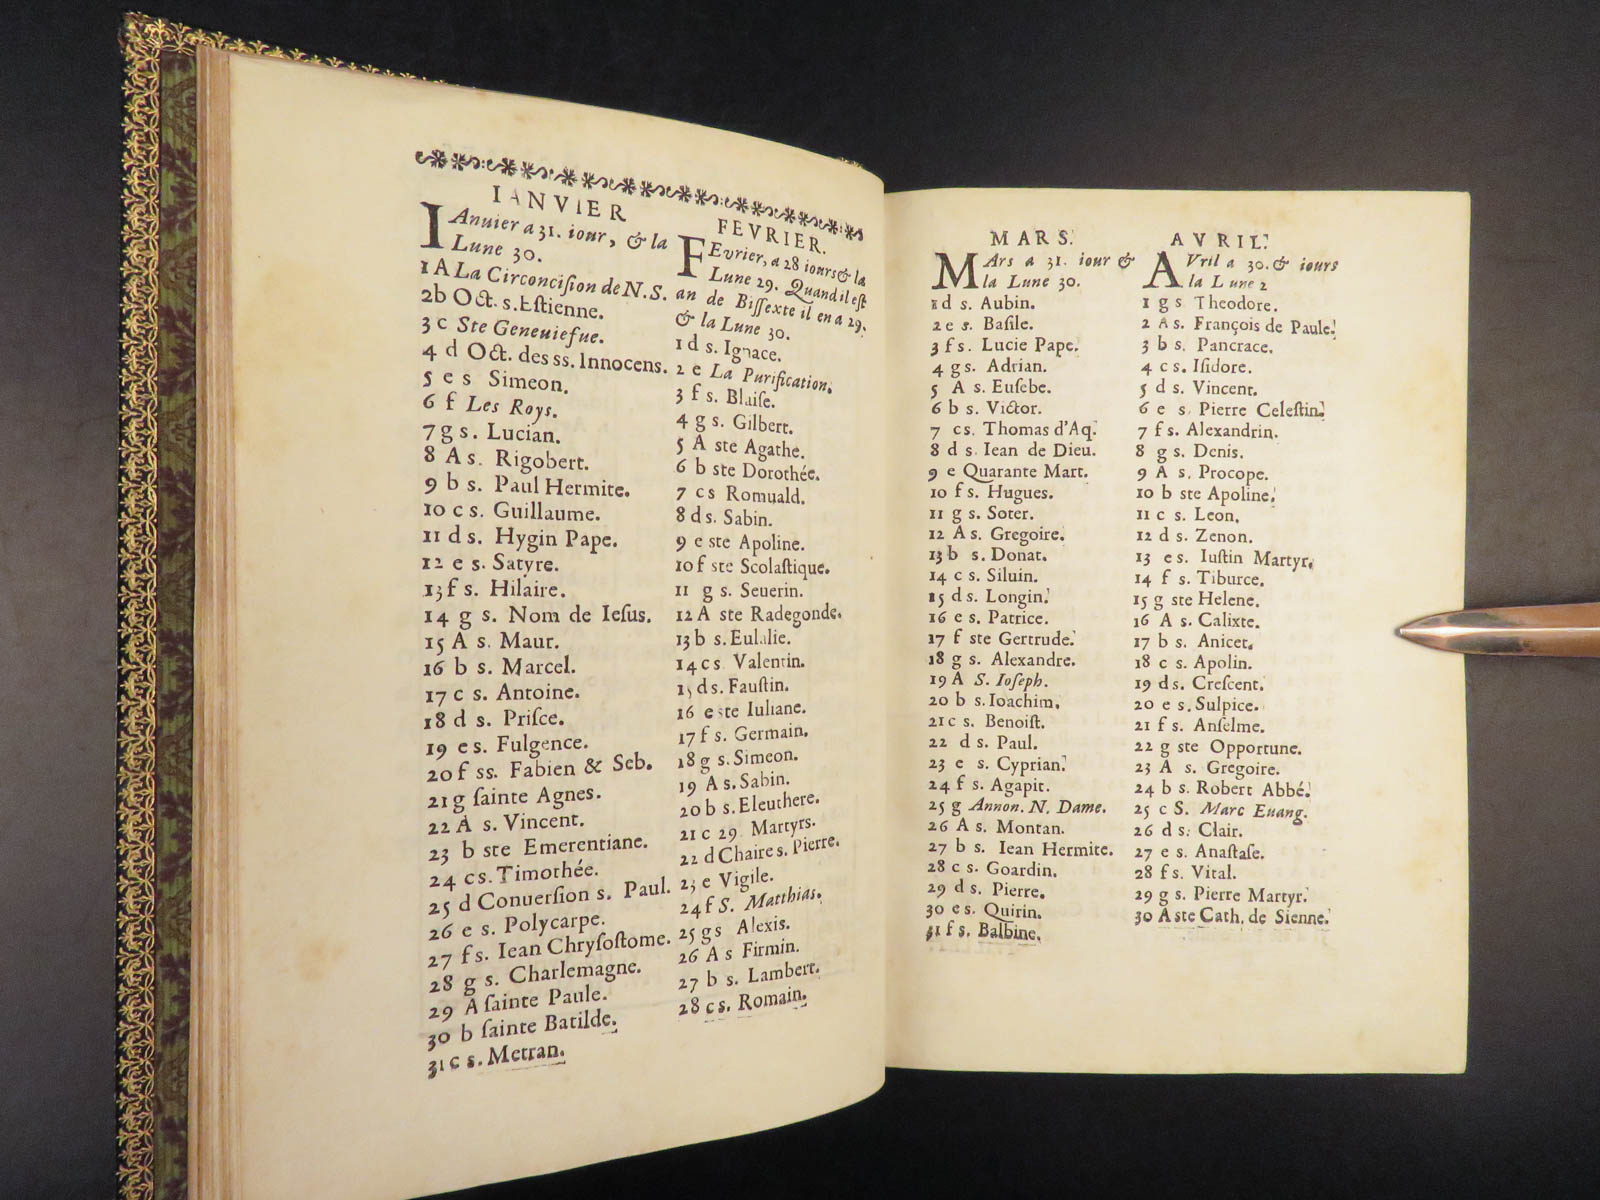 IANVIER
IAnuier a 31. iour, & la
Lune 30.
1 A La Circonciſion de N.S.
2 b Oct. s. Eſtienne.
3 c Ste Geneuiefue.
4 d Oct. des ss. Innocens.
5 e s Simeon.
6 f Les Roys.
7 g s. Lucian.
8 A s. Rigobert.
9 b s. Paul Hermite.
10 c s. Guillaume.
11 d s. Hygin Pape.
12 e s. Satyre.
13 f s. Hilaire.
14 g s. Nom de Ieſus.
15 A s. Maur.
16 b s. Marcel.
17 c s. Antoine.
18 d s. Priſce.
19 e s. Fulgence.
20 f ss. Fabien & Seb.
21 g ſainte Agnes.
22 A s. Vincent.
23 b ste Emerentiane.
24 c s. Timothée.
25 d Conuerſion s. Paul.
26 e s. Polycarpe.
27 f s. Iean Chryſoſtome.
28 g s. Charlemagne.
29 A ſainte Paule.
30 b ſainte Batilde.
31 c s. Metran.
FEVRIER.
FEvrier, a 28 iours & la
Lune 29. Quand il eſt
an de Biſſexte il en a 29.
& la Lune 30.
1 d s. Ignace.
2 e La Purification.
3 f s. Blaiſe.
4 g s. Gilbert.
5 A ste Agathe.
6 b ste Dorothée.
7 c s Romuald.
8 d s. Sabin.
9 e ste Apoline.
10 f ste Scolaſtique.
11 g s. Seuerin.
12 A ste Radegonde.
13 b s. Eulalie.
14 c s. Valentin.
15 d s. Fauſtin.
16 e ste Iuliane.
17 f s. Germain.
18 g s. Simeon.
19 A s. Sabin.
20 b s. Eleuthere.
21 c 29. Martyrs.
22 d Chaire s. Pierre.
23 e Vigile.
24 f S. Matthias.
25 g s Alexis.
26 A s Firmin.
27 b s. Lambert.
28 c s. Romain.
MARS.
MArs a 31. iour &
la Lune 30.
1 d s. Aubin.
2 e s. Baſile.
3 f s. Lucie Pape.
4 g s. Adrian.
5 A s. Euſebe.
6 b s. Victor.
7 c s. Thomas d'Aq.
8 d s. Iean de Dieu.
9 e Quarante Mart.
10 f s. Hugues.
11 g s. Soter.
12 A s. Gregoire.
13 b s. Donat.
14 c s. Siluin.
15 d s. Longin.
16 e s. Patrice.
17 f ste Gertrude.
18 g s. Alexandre.
19 A S. Ioſeph.
20 b s. Ioachim.
21 c s. Benoiſt.
22 d s. Paul.
23 e s. Cyprian.
24 f s. Agapit.
25 g Annon. N. Dame.
26 A s. Montan.
27 b s. Iean Hermite.
28 c s. Goardin.
29 d s. Pierre.
30 e s. Quirin.
31 f s. Balbine.
AVRIL.
AVril a 30. & iours
la Lune 2
1 g s Theodore.
2 A s. François de Paule.
3 b s. Pancrace.
4 c s. Iſidore.
5 d s. Vincent.
6 e s. Pierre Celeſtin.
7 f s. Alexandrin.
8 g s. Denis.
9 A s. Procope.
10 b ste Apoline.
11 c s. Leon.
12 d s. Zenon.
13 e s. Iuſtin Martyr.
14 f s. Tiburce.
15 g ste Helene.
16 A s. Calixte.
17 b s. Anicet.
18 c s. Apolin.
19 d s. Creſcent.
20 e s. Sulpice.
21 f s. Anſelme.
22 g ste Opportune.
23 A s. Gregoire.
24 b s. Robert Abbé.
25 c S. Marc Euang.
26 d s. Clair.
27 e s. Anaſtaſe.
28 f s. Vital.
29 g s. Pierre Martyr.
30 A ste Cath. de Sienne.